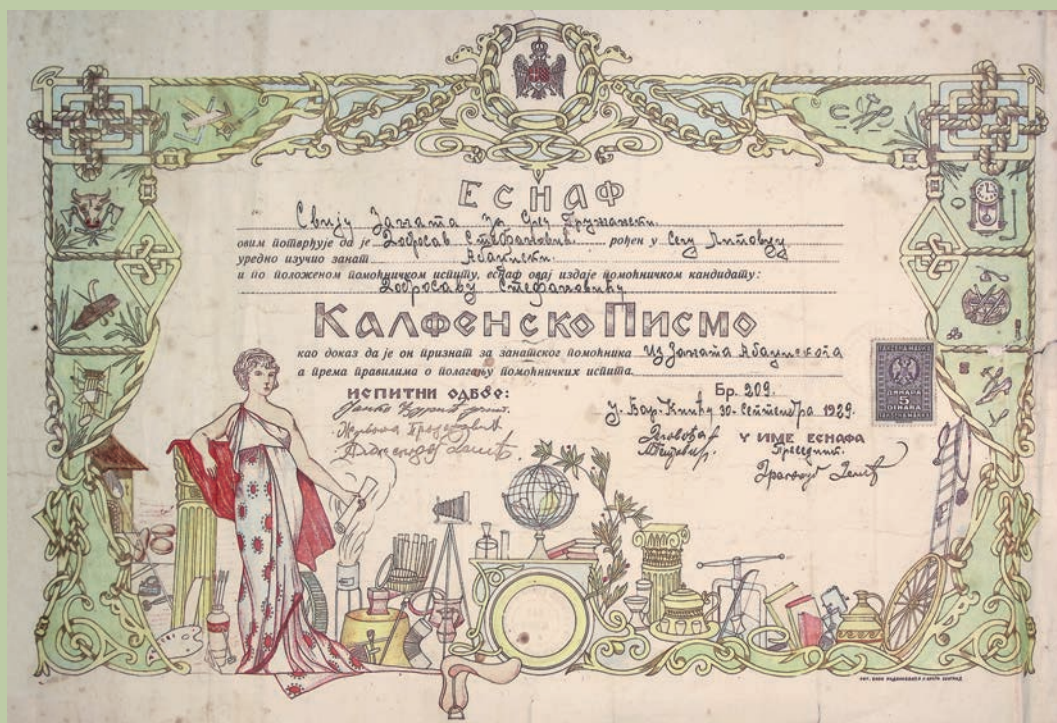 ЕСНАФ
Свију Заната За Срез Гружански.
овим потврђује да је Добросав Стефановић. рођен у Селу Липовцу
уредно изучио занат Абаџиски.
и по положеном помоћничком испиту, еснаф овај издаје помоћничком кандидату:
Добросаву Стефановићу
КАЛФЕНСКО ПИСМО
као доказ да је он признат за занатског помоћника из Заната Абаџискога
а према правилима о полагању помоћничких испита.
ИСПИТНИ ОДБОР:
Бр. 209.
У. Бар-Книћу 30. Септембра 1929.
Деловођа
У ИМЕ ЕСНАФА
Претседник.
ДИНАРА
5
DINARA